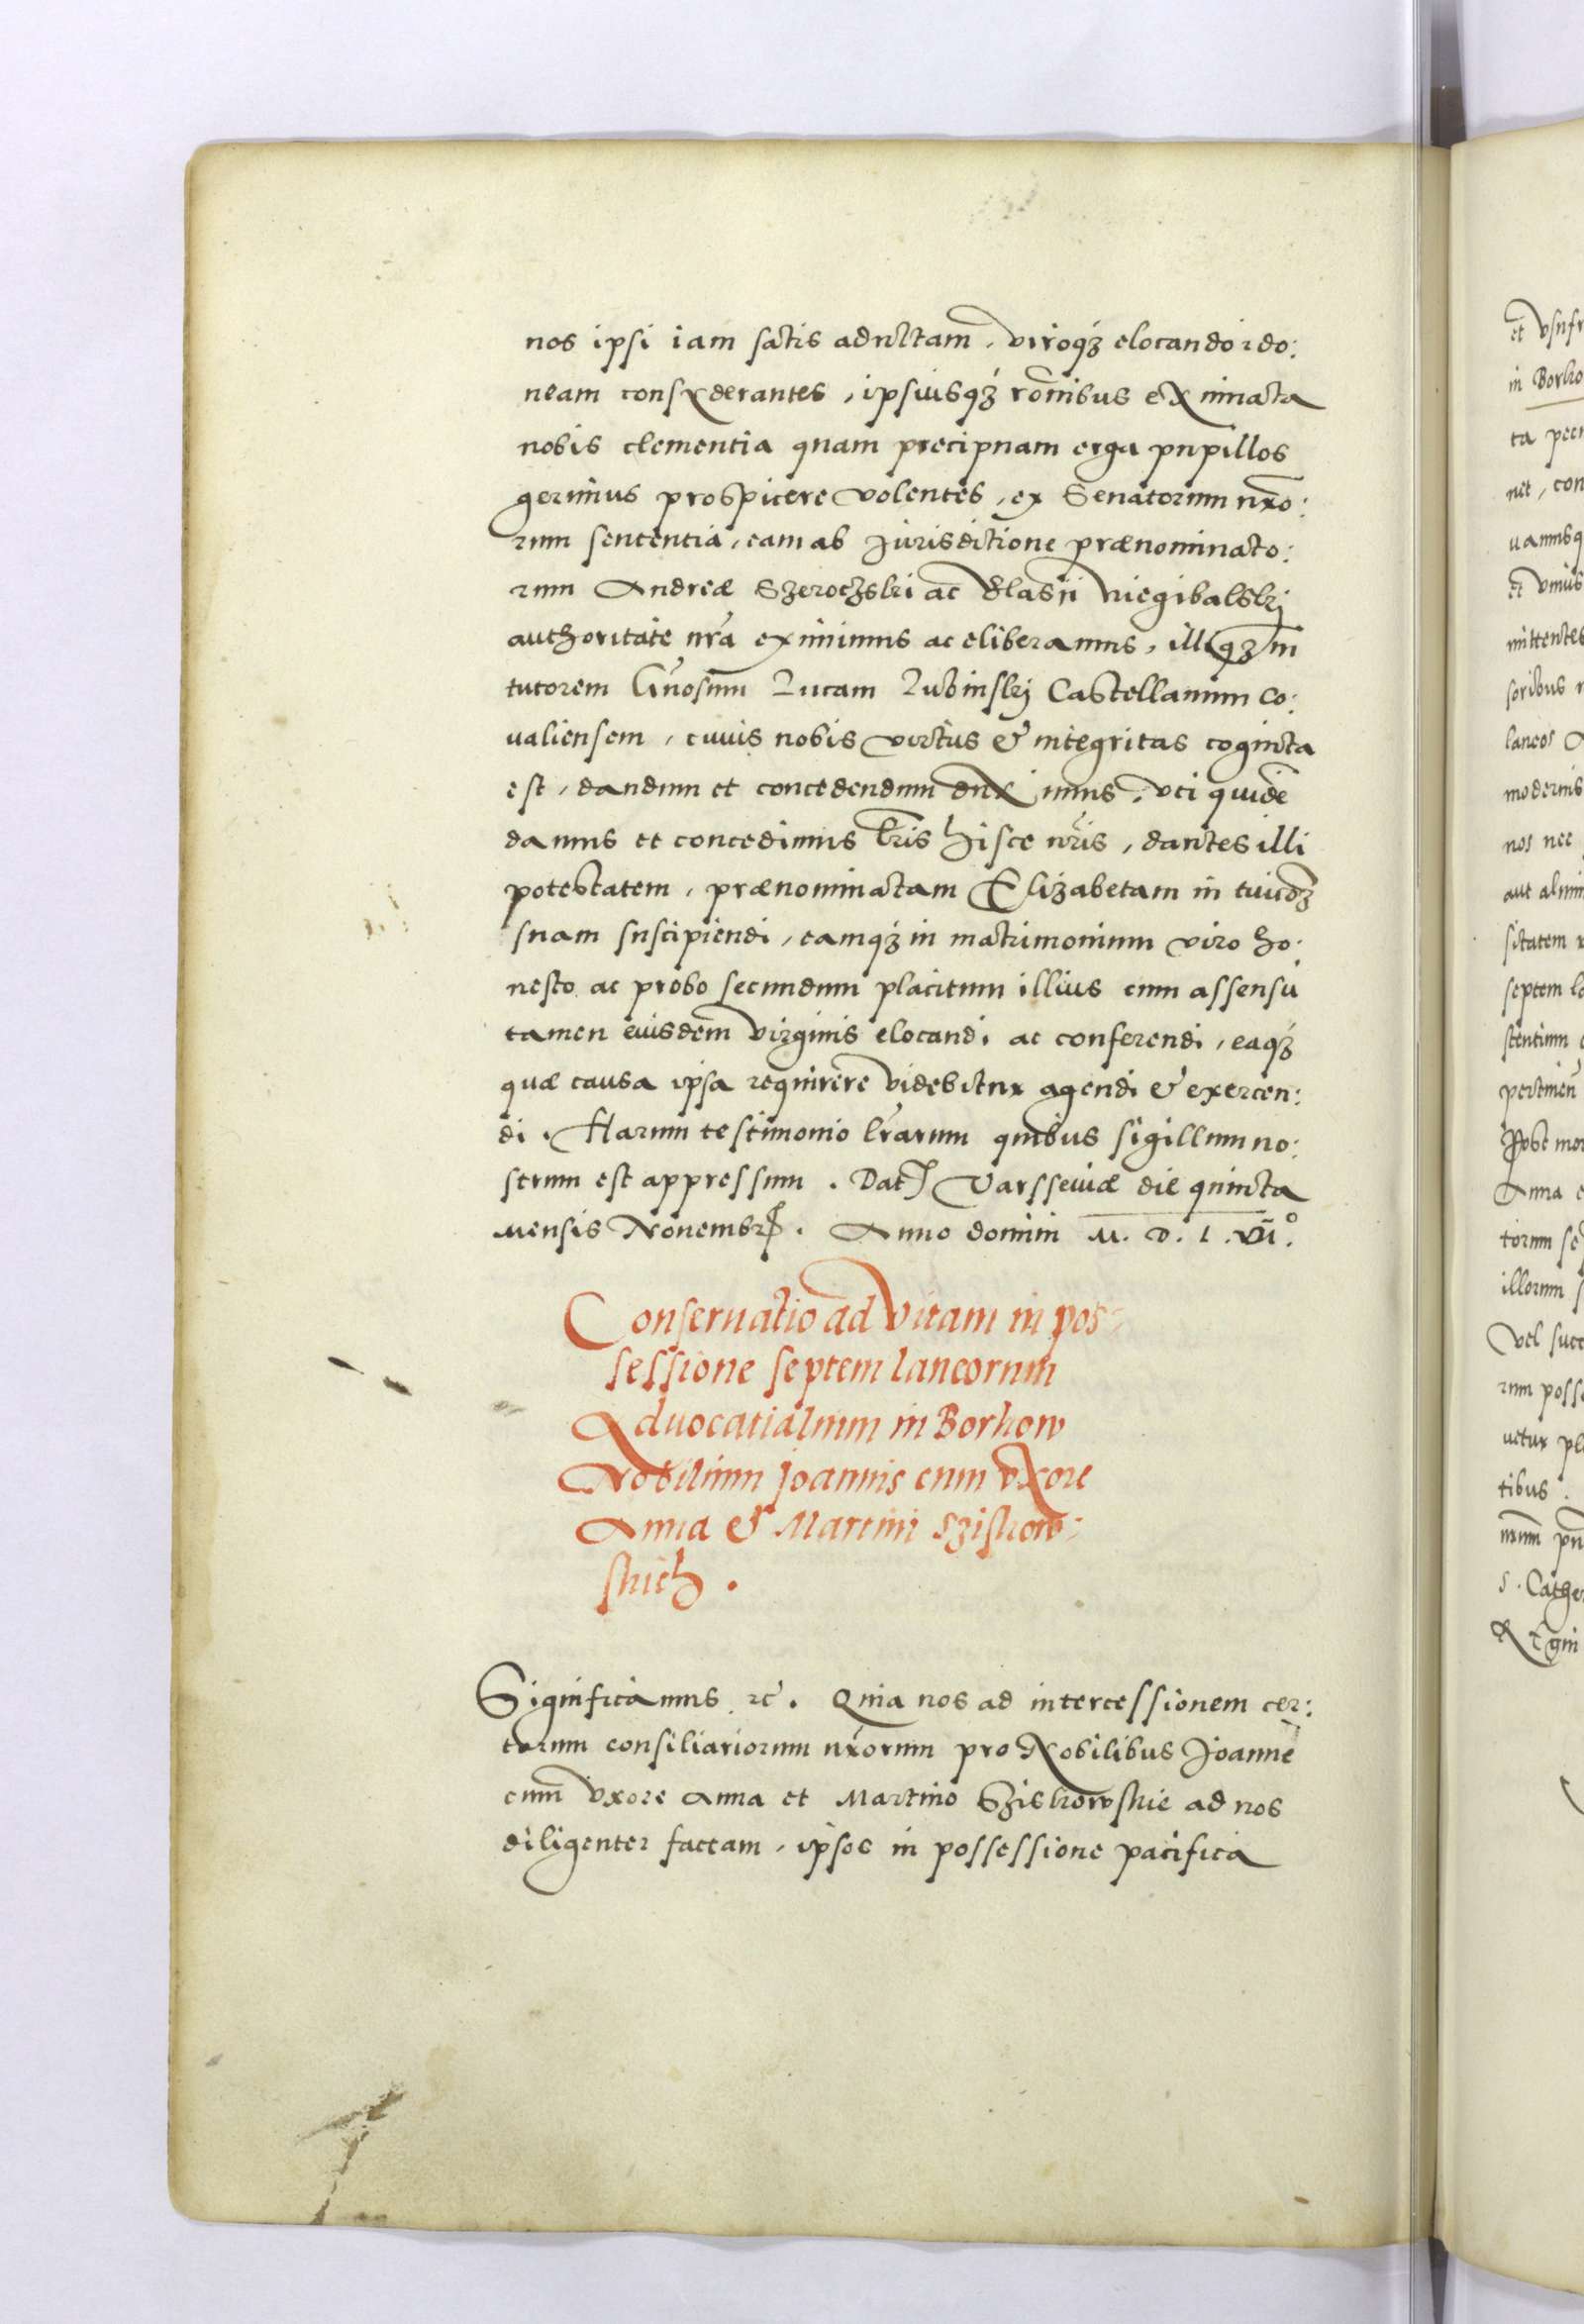 nos ipsi iam satis adultam, viroq́ꝫ elocando ido:
neam consyderantes, ipsiusq́ꝫ rōnibus ex innata
nobis clementia quam precipuam erga pupillos
gerimus prospicere volentes, ex Senatorum nr̄o:
rum sententia, eam ab Jurisditione prænominato:
rum Andreæ Szeroczski ac Blasii Niegibalskj
authoritate nr̄a eximimus ac eliberamus, illiq́ꝫ in
tutorem Gn̄osum Lucam Lubinskj Castellanum Co:
valiensem, cuius nobis virtus & integritas cognita
est, dandum et concedendum duximus, uti quidē
damus et concedimus lr̄is hisce nr̄is, dantes illi
potestatem, prænominatam Elizabetam in tuitōꝫ
suam suscipiendi, eamq́ꝫ in matrimonium viro ho:
nesto ac probo secundum placitum illius cum assensu
tamen eiusdem virginis elocandi ac conferendi, eaq́ꝫ
quæ causa ipsa requirere videbitur agendi & exercen:
di. Harum testimonio lr̄arum quibus sigillum no:
strum est appressum. Datꝭ Varsseviæ die quinta
mensis Novembrꝭ. Anno domini M. D. L. VII°.
Conservatio ad vitam in pos:
sessione septem laneorum
Advocatialium in Borkow
Nobilium Joannis cum vxore
Anna & Martini Sziskow:
skich.
Significamus ꝛc̄. Quia nos ad intercessionem cer:
torum consiliariorum nr̄orum pro Nobilibus Joanne
cum vxore Anna et Martino Sziskowskie ad nos
diligenter factam, ipsos in possessione pacifica
et usufr
in Borko
ta pecu
net, con
vamusq
et unius
mittentes
soribus
laneos
modernis
nos nec
aut alium
sitatem
septem la
stentium
pertinen̄
Post mor
Anna
torum se
illorum
vel succ
rum posse
vetur pl
tibus.
S. Cather
Regni